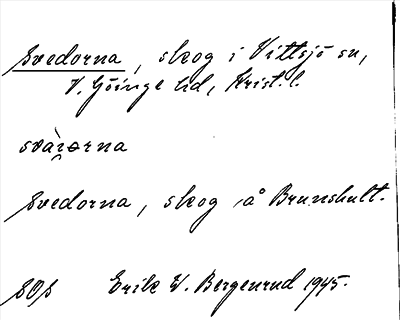 Svedorna, skog i Vittsjö sn,
V. Göinge hd, Krist. l.
svàr̯ɘrna
Svedorna, skog å Brunshult.
SOS Erik W. Bergenrud 1945.